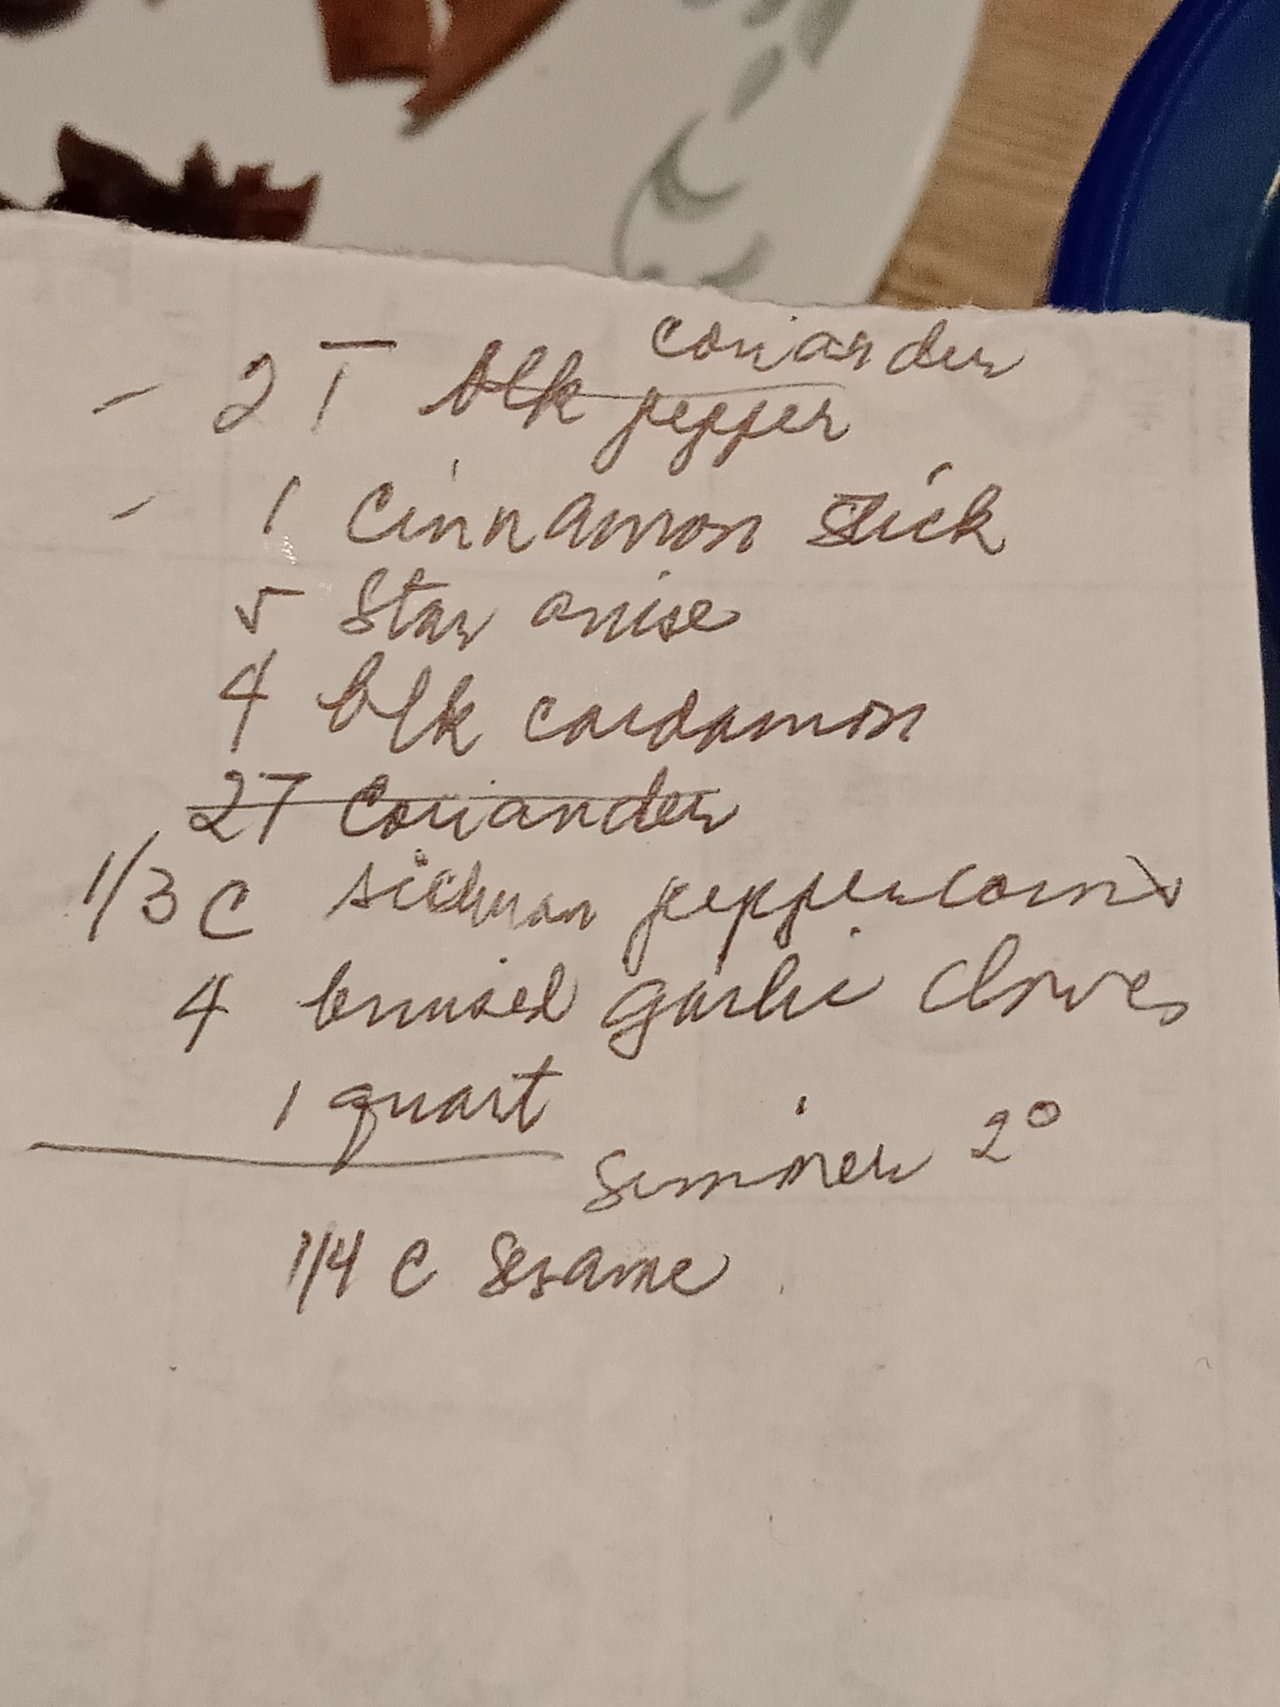 coriander
- 2T blk pepper
- 1 Cinnamon stick
5 Star anise
4 blk cardamon
2T Coriander
1/3 C sichuan peppercorns
4 bruised garlic cloves
1 quart
Simmer 2°
1/4 C Sesame